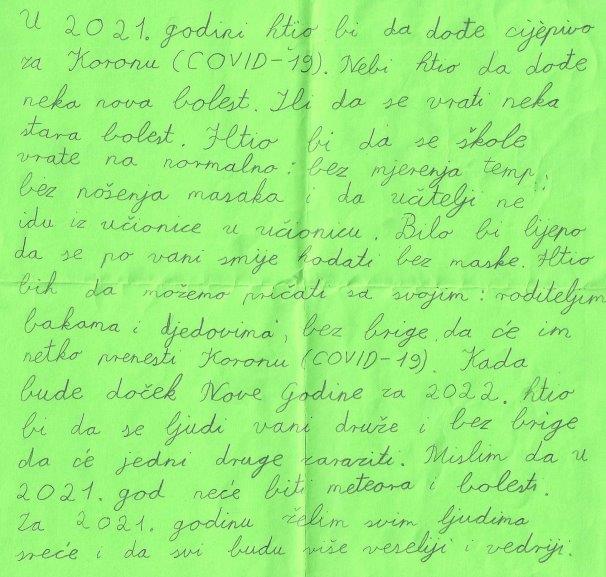 U 2021. godini htio bi da dođe cijepivo
za Koronu (COVID-19). Nebi htio da dođe
neka nova bolest. Ili da se vrati neka
stara bolest. Htio bi da se škole
vrate na normalno: bez mjerenja temp.,
bez nošenja masaka i da učitelji ne
idu iz učionice u učionicu. Bilo bi lijepo
da se po vani smije hodati bez maske. Htio
bih da možemo pričati sa svojim: roditeljim
bakama i djedovima, bez brige da će im
netko prenesti Koronu (COVID-19). Kada
bude doček Nove Godine za 2022. htio
bi da se ljudi vani druže i bez brige
da će jedni druge zaraziti. Mislim da u
2021. god neće biti meteora i bolesti.
Za 2021. godinu želim svim ljudima
sreće i da svi budu više veseliji i vedriji.